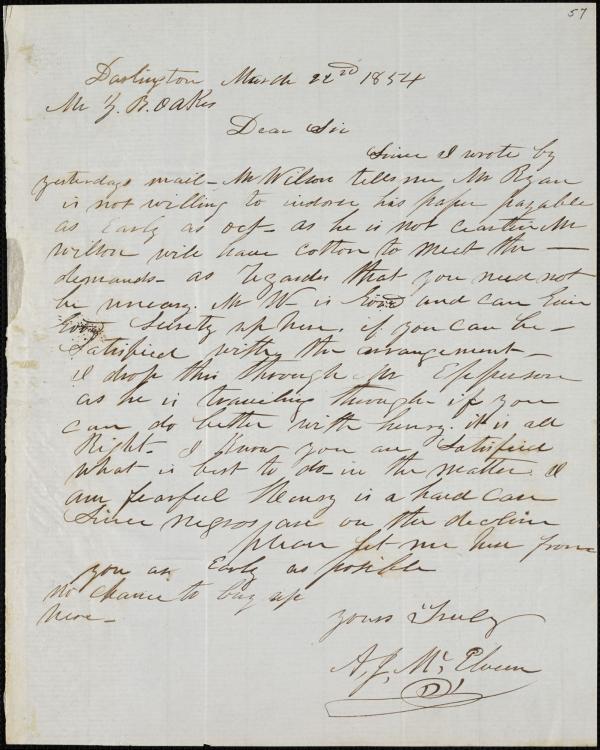 57
Darlington March 22nd 1854
Mr Z. B. Oakes
Dear Sir
Since I wrote by
yesterdays mail - Mr Wilson tells me Mr Ryan
is not willing to indorse his paper payable
as Early as oct - as he is not certain Mr
Wilson will have cotton to meet the —
demands - as regardes that you need not
be uneasy. Mr W is Good and can give
Good Surety up here, if you can be -
Satisfied with the arrangement -
I drop this through Mr Epperson
as he is traveling through if you
can do better with henry. it is all
Right - I Know you are Satisfied
what is best to do - in the matter. I
am fearful Henry is a hard case
Since negros are on the decline
please let me hear from
you as Early as posible
no chance to buy up
here -
yours Truly
A. J. McElveen